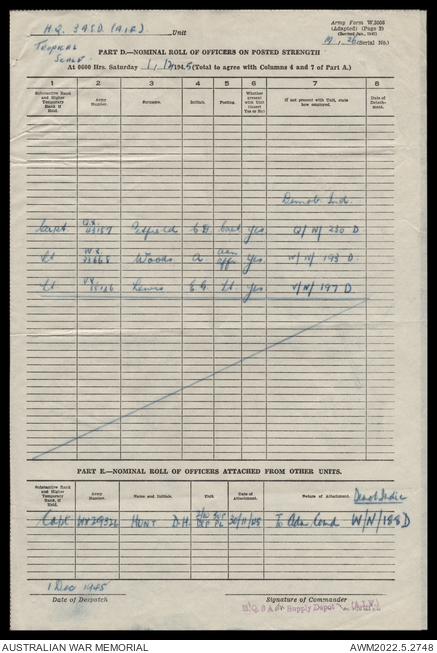 Army Form W.3008
(Adapted) (Page 3)
H.Q. 3 A.S.D. (A.I.F.) Unit
(Serial No.)
Tropical
Scale.
PART D.—NOMINAL ROLL OF OFFICERS ON POSTED STRENGTH
At 0600 Hrs. Saturday 1/12/1945 (Total to agree with Columns 4 and 7 of Part A.)
1 2 3 4 5 6 7 8
Substantive Rank and Higher Temporary Rank if Held. Army Number. Surname. Initials. Posting. Whether present with Unit (Insert Yes or No) If not present with Unit, state how employed. Date of Detachment.
Demob Ind.
Capt. Q.X. 43157 C.G. Capt Yes. Q/N/230 D
Lt W.X. Woods A Yes. W/N/193 D
Lt VX Lewis E.G. Lt Yes V/N/197 D
PART E.—NOMINAL ROLL OF OFFICERS ATTACHED FROM OTHER UNITS.
Substantive Rank and Higher Temporary Rank if Held. Army Number. Name and Initials. Unit. Date of Attachment. Nature of Attachment. Demob Indic
Capt WX29326 HUNT D.H. 30/11/45 To Adm. Comd W/N/188 D
1 Dec 1945
Date of Despatch Signature of Commander
H.Q. 3 Adv Supply Depot (A.I.F.)
AUSTRALIAN WAR MEMORIAL AWM2022.5.2748